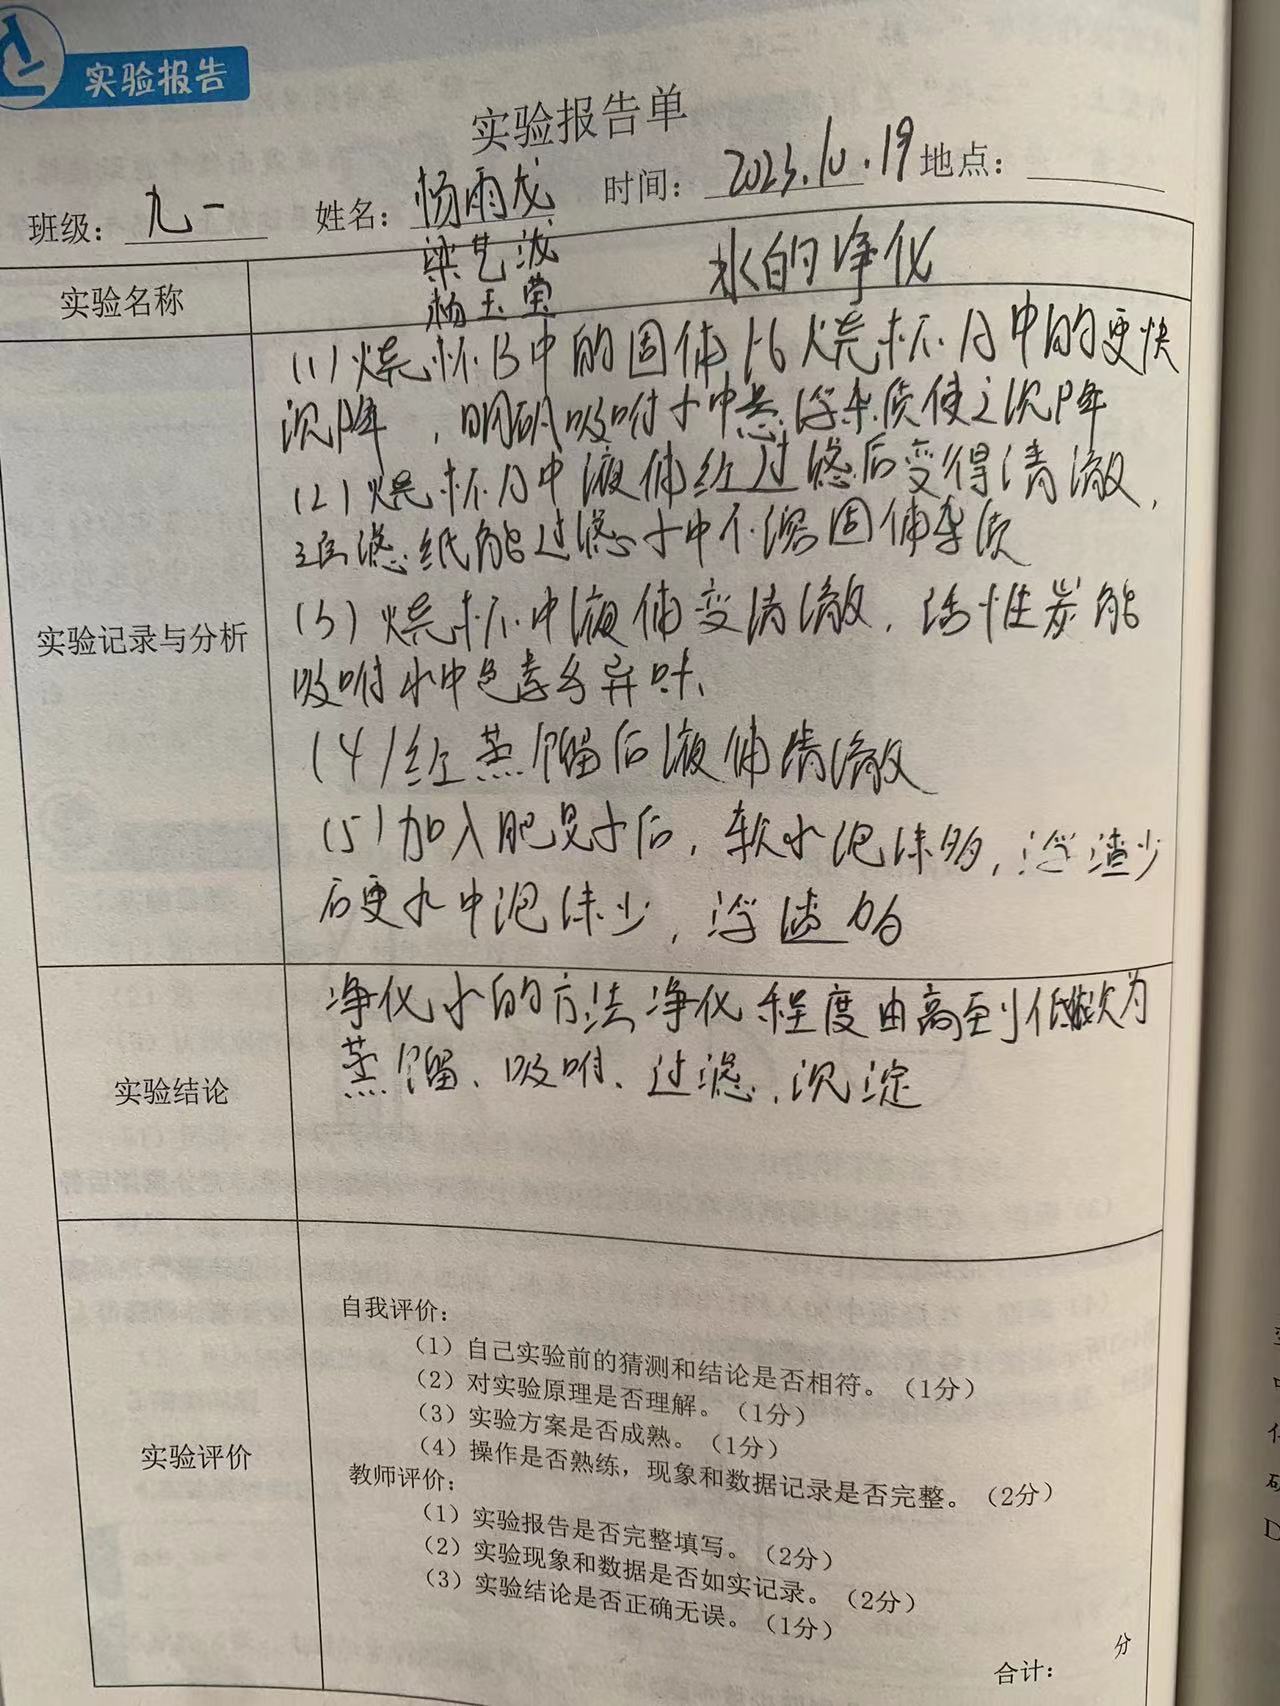 实验报告
实验报告单
班级：九一 姓名：杨雨龙 时间：2023.10.19 地点：
梁艺波
杨玉莹
实验名称 水的净化
(1)烧杯B中的固体比烧杯A中的更快
沉降，明矾吸附水中悬浮杂质使之沉降
(2)烧杯A中液体经过滤后变得清澈，
滤纸能过滤水中不溶固体杂质
实验记录与分析
(3)烧杯中液体变清澈，活性炭能
吸附水中色素与异味、
(4)经蒸馏后液体清澈
(5)加入肥皂水后，软水泡沫多，浮渣少
后更水中泡沫少，浮渣多
净化水的方法净化程度由高到低依次为
蒸馏、吸附、过滤、沉淀
实验结论
自我评价：
（1）自己实验前的猜测和结论是否相符。（1分）
（2）对实验原理是否理解。（1分）
（3）实验方案是否成熟。（1分）
（4）操作是否熟练，现象和数据记录是否完整。（2分）
实验评价
教师评价：
（1）实验报告是否完整填写。（2分）
（2）实验现象和数据是否如实记录。（2分）
（3）实验结论是否正确无误。（1分）
合计： 分